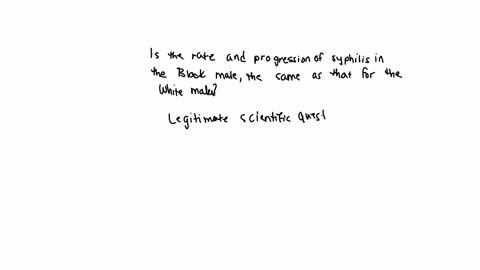 Is the rate and progression of syphilis in
the Black male, the same as that for the
White males?
Legitimate scientific Quest